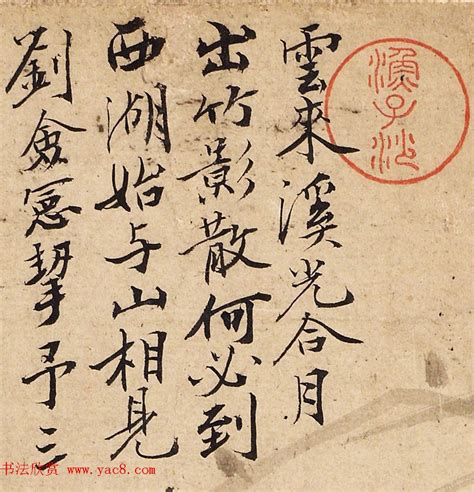 漁子沙
雲來溪光合月
出竹影散何必到
西湖始与山相見
劉僉憲挈予三
书法欣赏 www.yac8.com